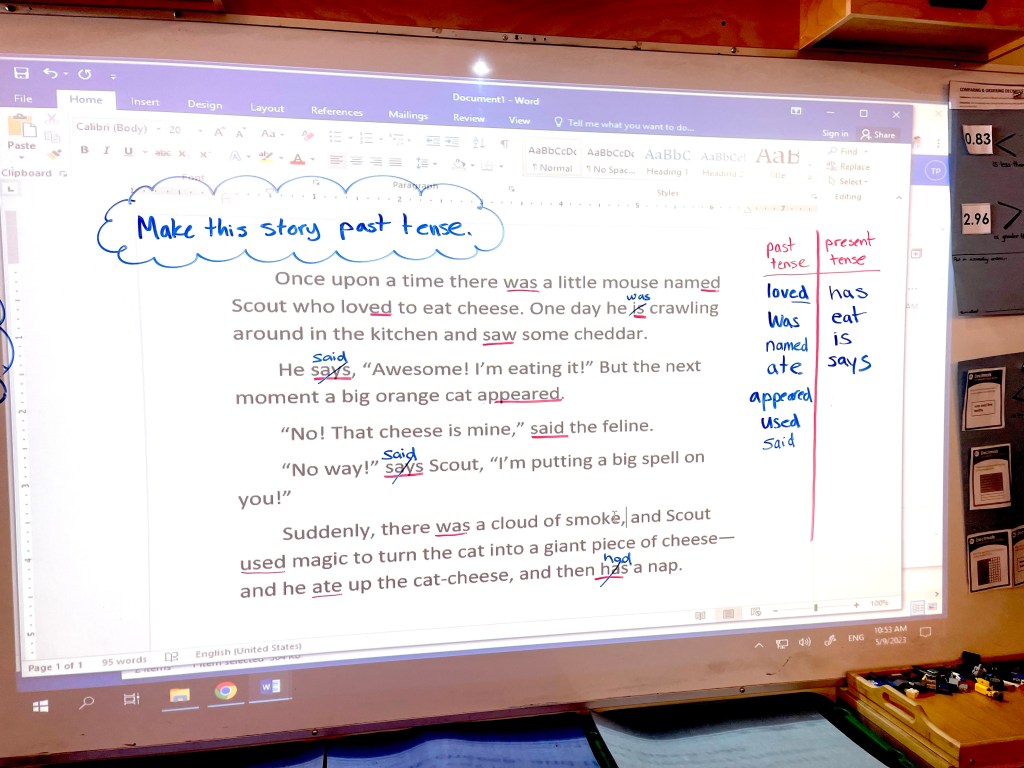 Document1 - Word
File Home Insert Design Layout References Mailings Review View Tell me what you want to do... Sign in Share
Paste
Clipboard
Calibri (Body) 20
Font
Paragraph
AaBbCcDc AaBbCcDc AaBbC AaBbCcl AaB
¶ Normal ¶ No Spac... Heading 1 Heading Title
Styles
Find
Replace
Select
Editing
TP
Make this story past tense.
Once upon a time there was a little mouse named
was
Scout who loved to eat cheese. One day he is crawling
around in the kitchen and saw some cheddar.
said
He says, “Awesome! I’m eating it!” But the next
moment a big orange cat appeared.
“No! That cheese is mine,” said the feline.
said
“No way!” says Scout, “I’m putting a big spell on
you!”
Suddenly, there was a cloud of smoke, and Scout
used magic to turn the cat into a giant piece of cheese—
had
and he ate up the cat-cheese, and then has a nap.
past tense
present tense
loved has
was eat
named is
ate says
appeared
used
said
Page 1 of 1 95 words English (United States) 100%
ENG
10:53 AM
5/9/2023
0.83 <
2.96 >